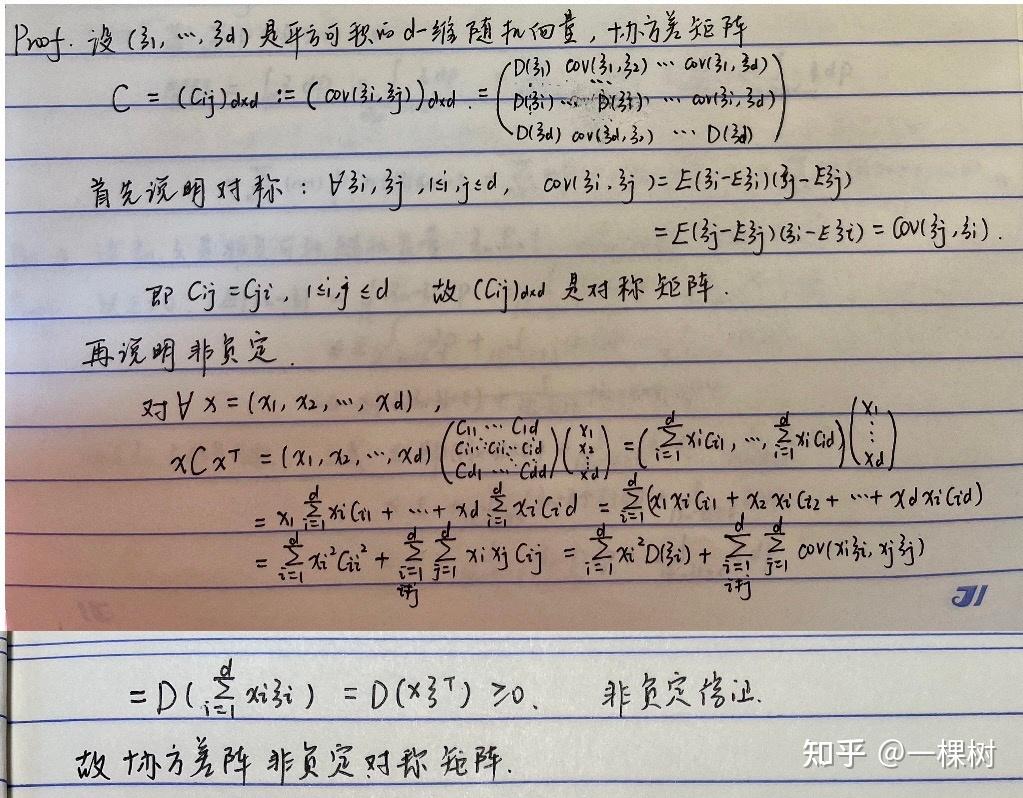 Proof. 设 (ξ1, ⋯, ξd) 是平方可积的 d-维随机向量, 协方差矩阵
C = (Cij)d×d := (cov(ξi, ξj))d×d. = ( D(ξ1) cov(ξ1, ξ2) ⋯ cov(ξ1, ξd)
D(ξi) ⋯ D(ξi) ⋯ cov(ξi, ξd)
D(ξd) cov(ξd, ξ2) ⋯ D(ξd) )
首先说明对称: ∀ ξi, ξj, 1≤i, j≤d, cov(ξi, ξj) = E(ξi-Eξi)(ξj-Eξj)
= E(ξj-Eξj)(ξi-Eξi) = cov(ξj, ξi).
即 Cij = Cji, 1≤i, j≤d 故 (Cij)d×d 是对称矩阵.
再说明非负定.
对 ∀ x = (x1, x2, ⋯, xd),
xCx^T = (x1, x2, ⋯, xd) ( C11 ⋯ C1d / Ci1 ⋯ Cii ⋯ Cid / Cd1 ⋯ Cdd ) ( x1 / x2 / ⋮ / xd ) = ( ∑_{i=1}^{d} xiCi1, ⋯, ∑_{i=1}^{d} xiCid ) ( x1 / ⋮ / xd )
= x1 ∑_{i=1}^{d} xiCi1 + ⋯ + xd ∑_{i=1}^{d} xiCid = ∑_{i=1}^{d} (x1xiCi1 + x2xiCi2 + ⋯ + xdxiCid)
= ∑_{i=1}^{d} xi²Cii² + ∑_{i=1, i≠j}^{d} ∑_{j=1}^{d} xixjCij = ∑_{i=1}^{d} xi²D(ξi) + ∑_{i=1, i≠j}^{d} ∑_{j=1}^{d} cov(xiξi, xjξj)
= D( ∑_{i=1}^{d} xiξi ) = D(xξ^T) ≥ 0. 非负定得证.
故协方差阵非负定对称矩阵.
知乎 @一棵树